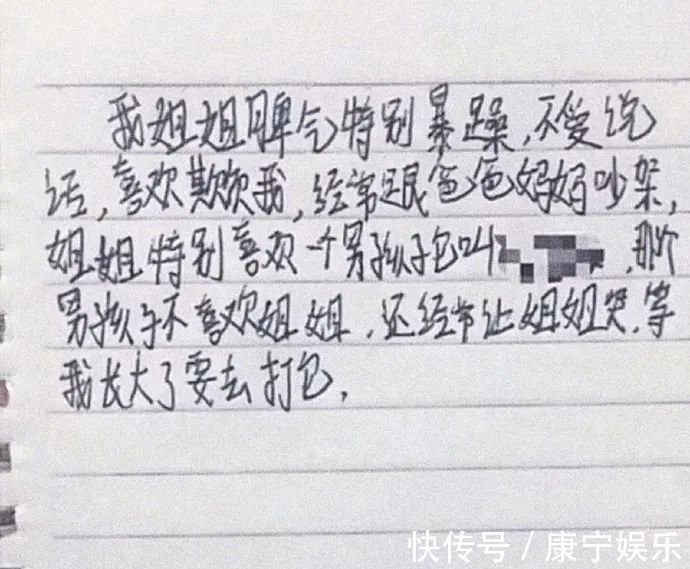 我姐姐脾气特别暴躁,不爱说
话,喜欢欺负我,经常跟爸爸妈妈吵架,
姐姐特别喜欢一个男孩子包叫 ,那个
男孩子不喜欢姐姐,还经常让姐姐哭,等
我长大了要去打包,
快传号/康宁娱乐